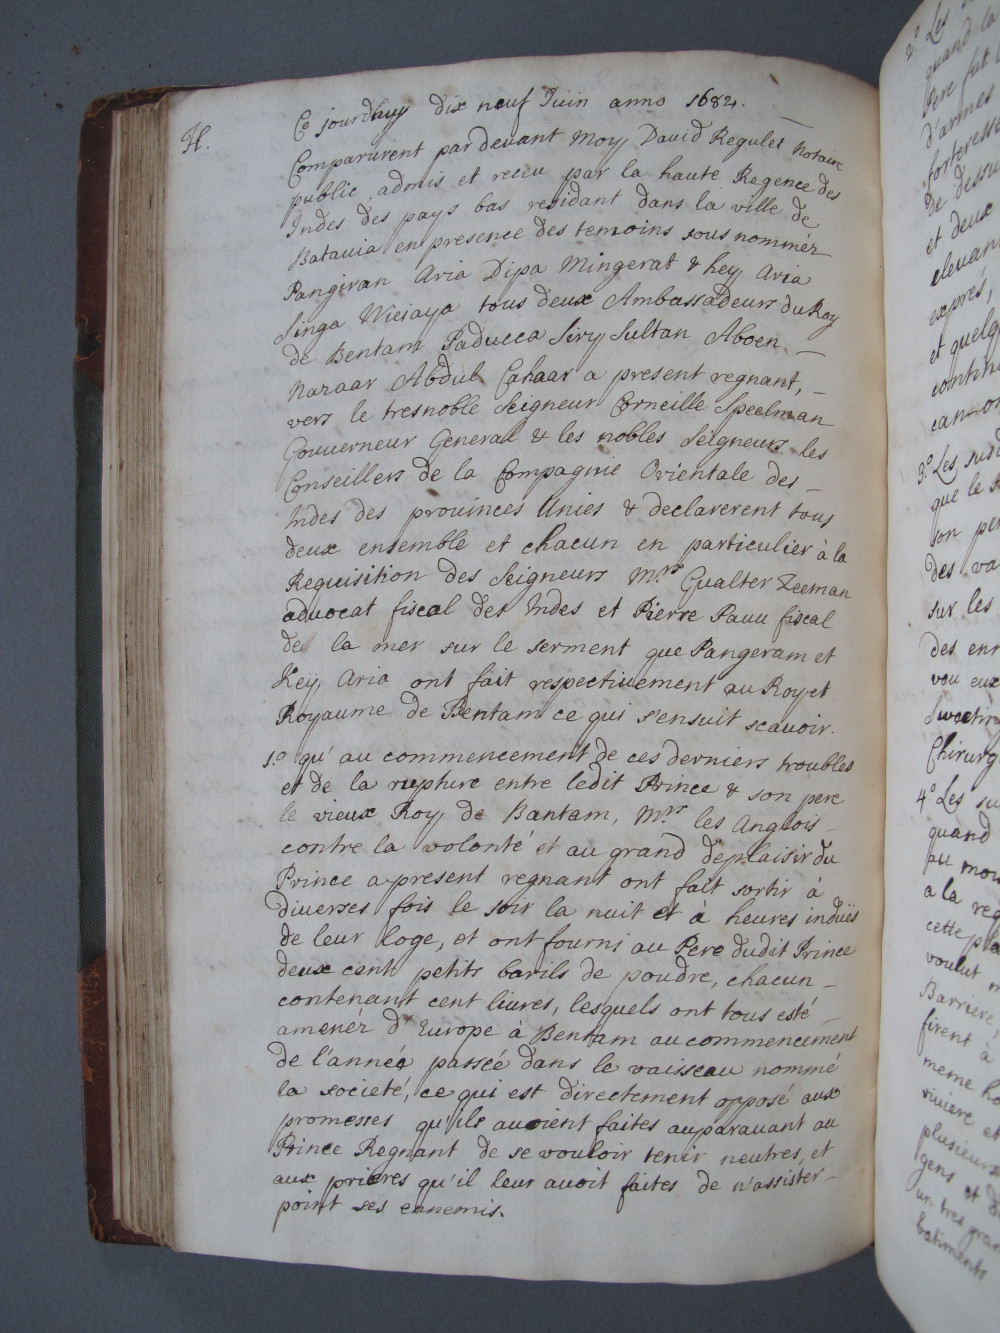 H.
Ce jourdhuy dix neuf Juin anno 1682.
Comparurent par devant Moy David Regulet Notaire
public admis et receu par la haute Regence des
Indes des pays bas residant dans la ville de
Batavia en presence des temoins sous nommér
Pangiran Aria Dipa Mingerat & key Aria
Singa Wiciaya tous deux Ambassadeurs du Roy
de Bentam Paducca Siry Sultan Aboen
Nazaar Abdul Cahaar a present regnant,
vers le tresnoble Seigneur Corneille Speelman
Gouverneur General & les nobles Seigneurs les
Conseillers de la Compagnie Orientale des
Indes des provinces Unies & declarerent tous
deux ensemble et chacun en particulier à la
Requisition des Seigneurs Mrs Gualter Zeeman
advocat fiscal des Indes et Pierre Pauu fiscal
de la mer sur le serment que Pangeram et
Key Aria ont fait respectivement au Roy et
Royaume de Bentam ce qui s'ensuit scavoir.
1.o qu'au commencement de ces derniers troubles
et de la rupture entre ledit Prince & son pere
le vieux Roy de Bantam, Mrs les Anglois
contre la volonté et au grand deplaisir du
Prince a present regnant ont fait sortir à
diverses fois le soir la nuit et à heures induës
de leur loge, et ont fourni au Pere dudit Prince
deux cent petits barils de poudre, chacun
contenant cent livres, lesquels ont tous esté
amenér d'Europe à Bentam au commencement
de l'année passée dans le vaisseau nommé
la societé, ce qui est directement opposé aux
promesses qu'ils avoient faites auparavant au
Prince Regnant de se vouloir tenir neutres, et
aux prieres qu'il leur avoit faites de n'assister
point ses ennemis.
2.o Les
quand la
Pere fut
d'armes
forteresse
de dessu
et deux
elevan
exprés,
et quelq
contin
canon
3.o Les susd
que le
son pe
des va
sur les
des enn
veu eux
Chirurg
4.o Les su
quand
au mou
a la req
cette pla
voulut
Barriere
firent à
meme
riviere et
plusieurs
gens et d
un tres gran
batiments